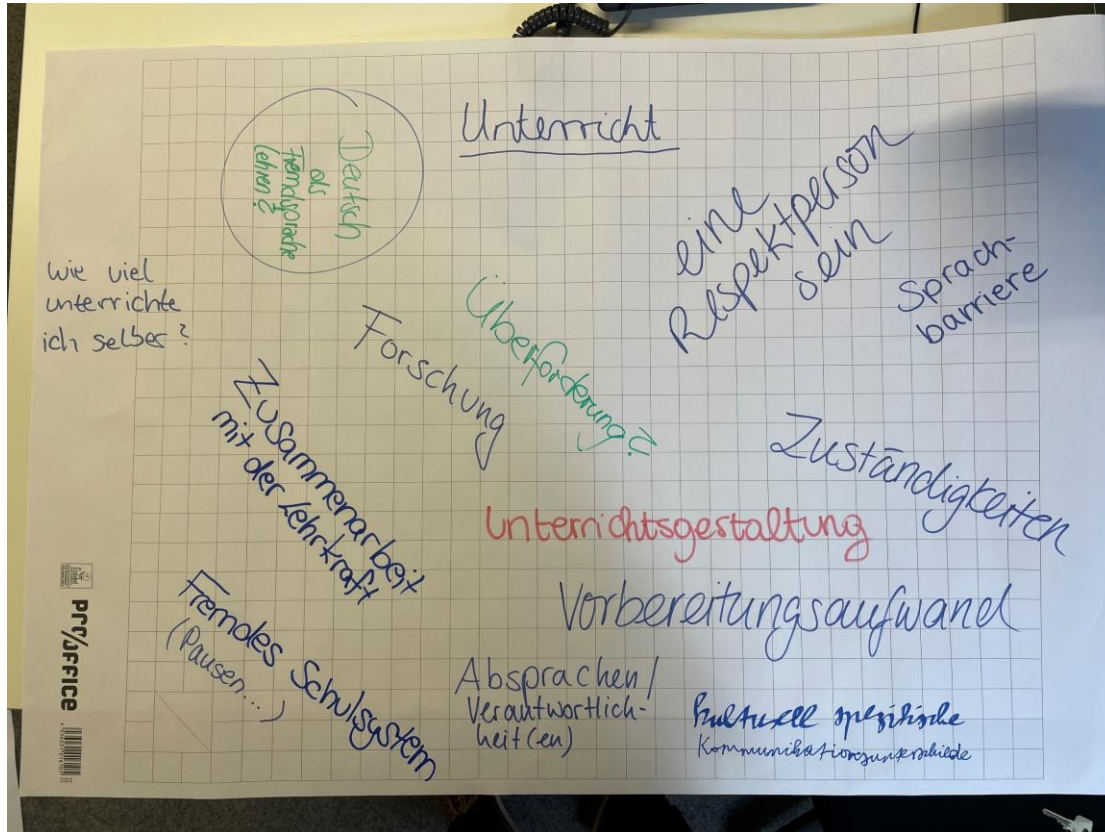 Unterricht
Deutsch
als
Fremdsprache
lehren?
eine
Respektperson
sein
Sprach-
barriere
wie viel
unterrichte
ich selber?
Forschung
Überforderung?
Zusammenarbeit
mit der Lehrkraft
Zuständigkeiten
Unterrichtsgestaltung
Vorbereitungsaufwand
Fremdes Schulsystem
(Pausen...)
Absprachen/
Verantwortlich-
keit(en)
kulturell spezifische
Kommunikationsunterschiede
PRO/OFFICE